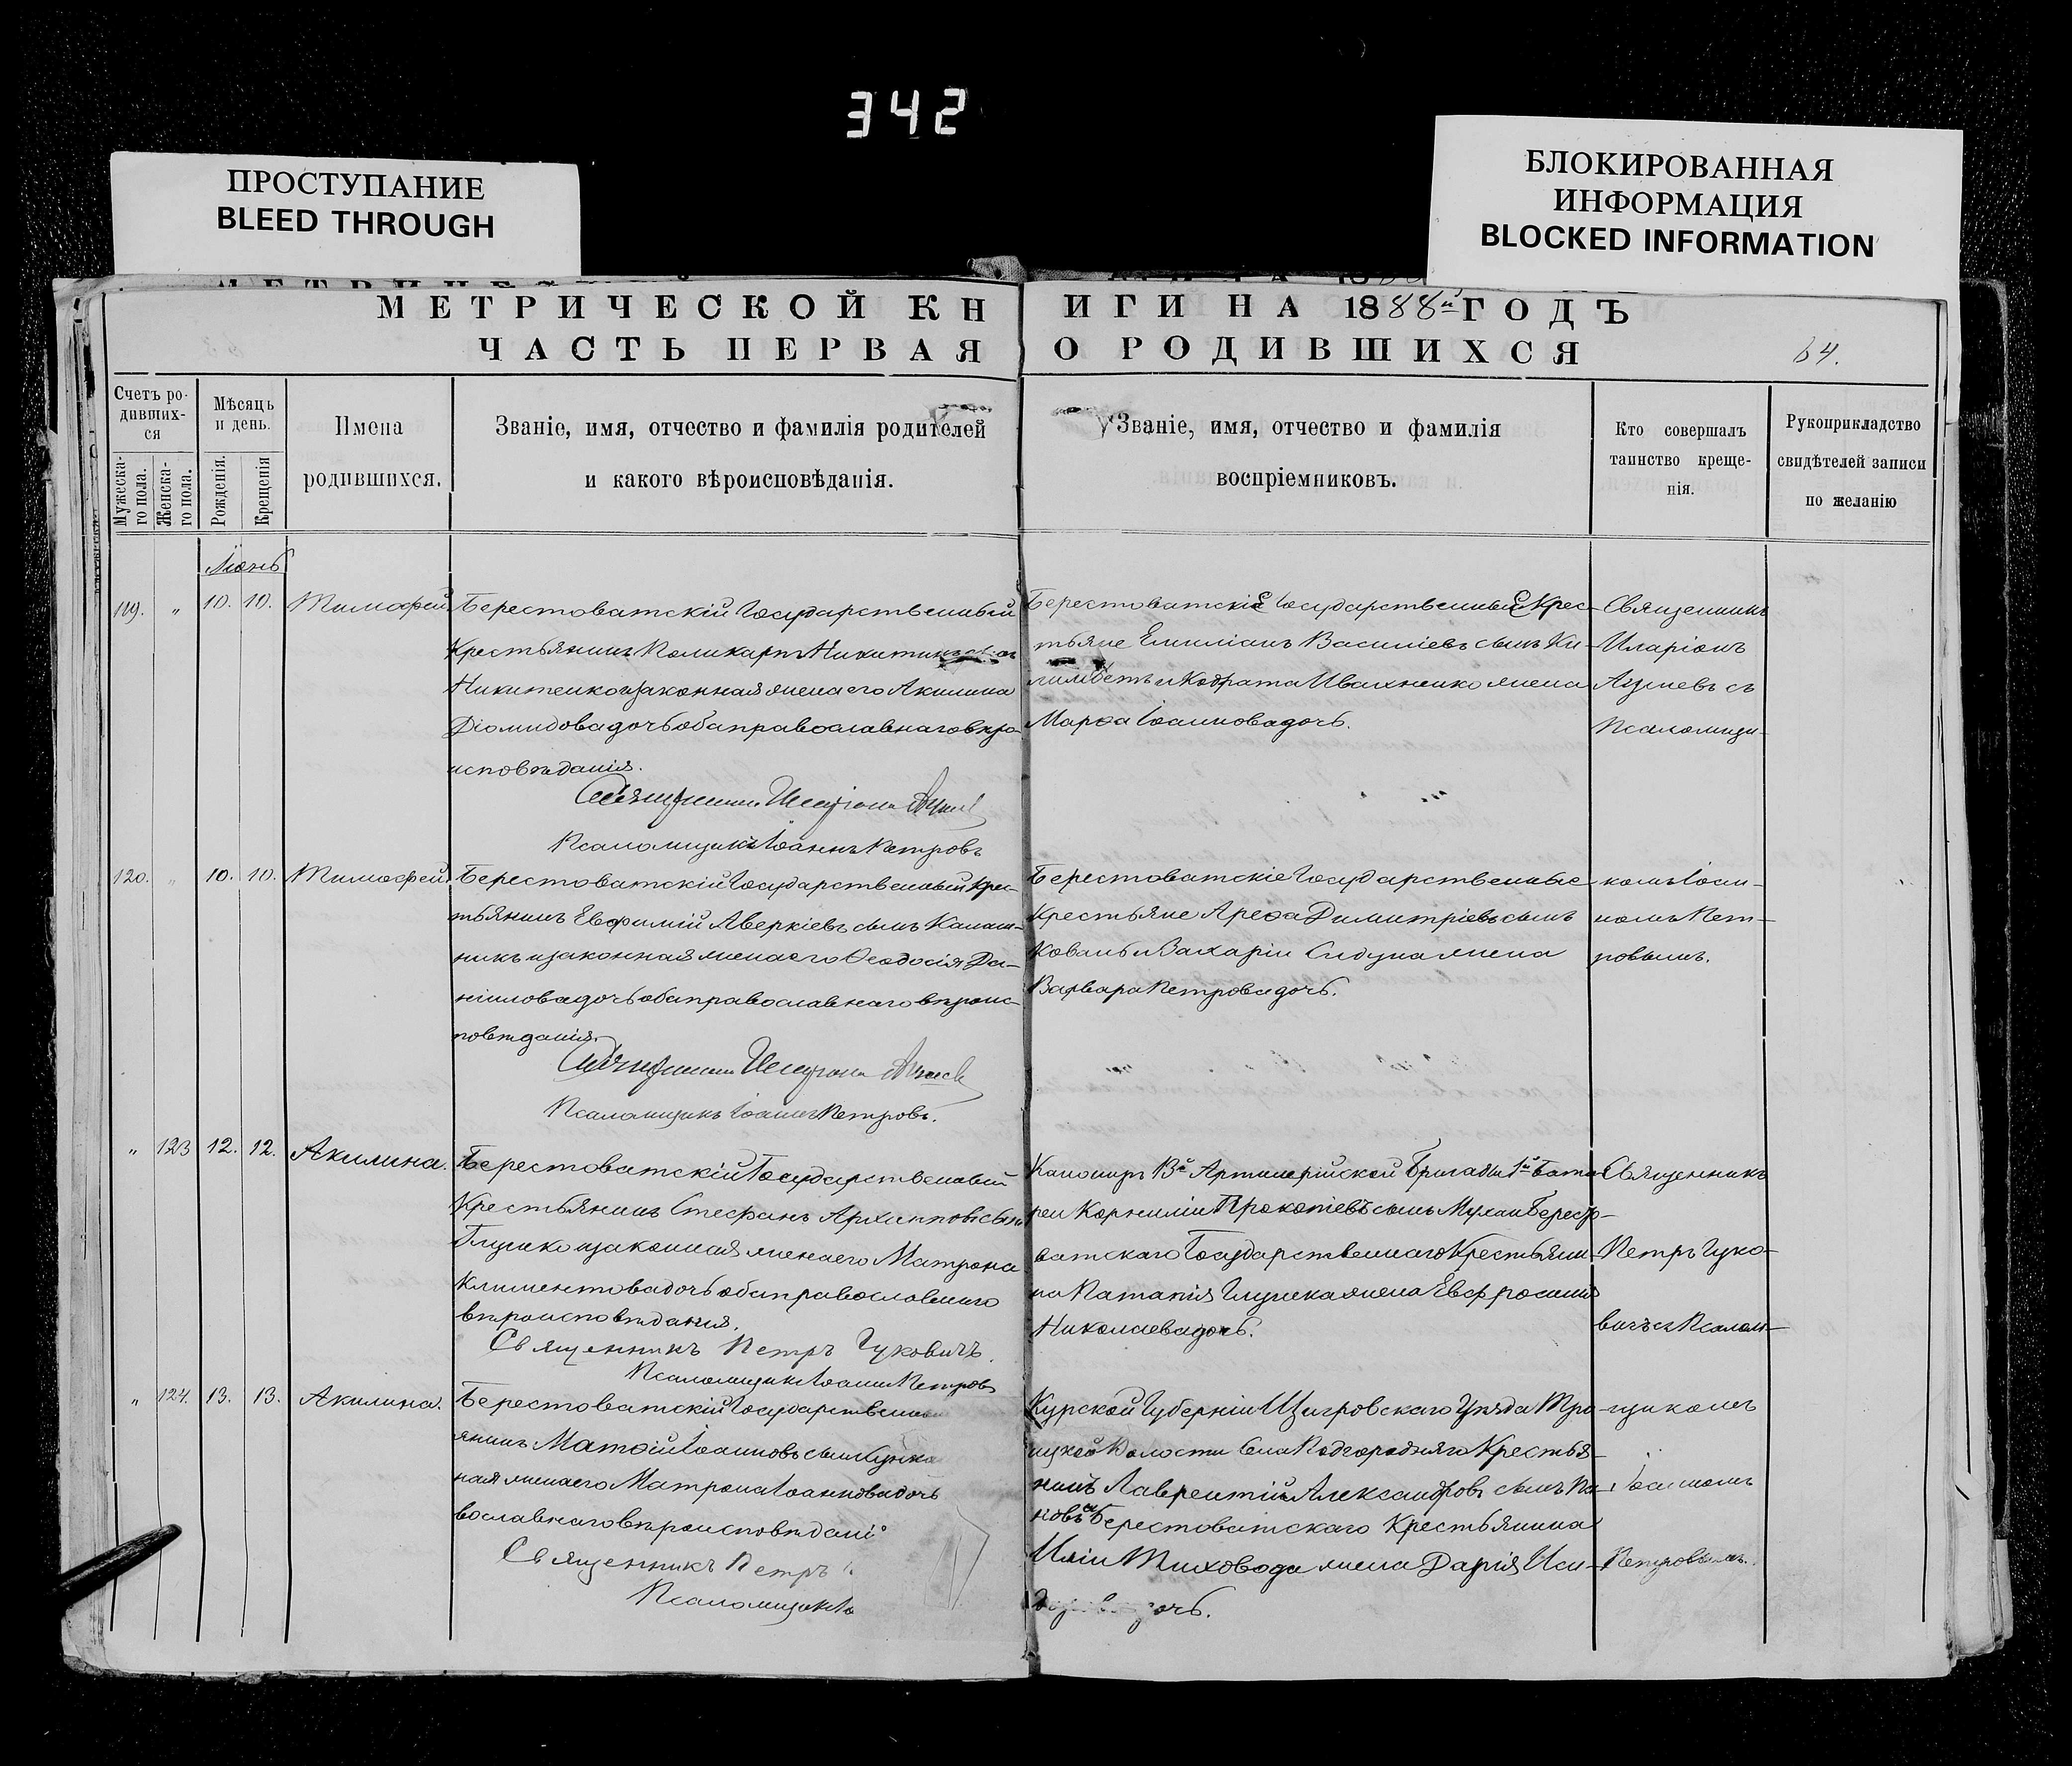 342
ПРОСТУПАНИЕ
BLEED THROUGH
БЛОКИРОВАННАЯ
ИНФОРМАЦИЯ
BLOCKED INFORMATION
МЕТРИЧЕСКОЙ КНИГИ НА 1888й ГОДЪ
ЧАСТЬ ПЕРВАЯ О РОДИВШИХСЯ
64.
Счетъ ро-
дивших-
ся
Мужеска-
го пола.
Женска-
го пола.
Мѣсяцъ
и день.
Рожденія.
Крещенія
Имена
родившихся.
Званіе, имя, отчество и фамилія родителей
и какого вѣроисповѣданія.
Званіе, имя, отчество и фамилія
воспріемниковъ.
Кто совершалъ
таинство креще-
нія.
Рукоприкладство
свидѣтелей записи
по желанію
Іюнь
119. " 10. 10. Тимофей.
Берестоватскій Государственный
Крестьянинъ Поликарпъ Никитинъ
Никитенко и законная жена его Акилина
Діомидова дочь оба православнаго вѣро-
исповѣданія.
Священникъ Иларіонъ
Псаломщикъ Іоаннъ Петровъ
Берестоватскіе Государственные Крес-
тьяне Емиліанъ Василіевъ сынъ
и Кодрата Ивахненко жена
Марѳа Іоаннова дочь.
Священникъ
Иларіонъ
съ
Псаломщи-
120. " 10. 10. Тимофей.
Берестоватскій Государственный Крес-
тьянинъ Евфимій Аверкіевъ сынъ Калаш-
никъ и законная жена его Ѳеодосія Да-
ніилова дочь оба православнаго вѣроис-
повѣданія.
Священникъ Иларіонъ
Псаломщикъ Іоаннъ Петровъ.
Берестоватскіе Государственные
Крестьяне Ареѳа Димитріевъ сынъ
Коваль и Захаріи жена
Варвара Петрова дочь.
комъ Іоан-
номъ Пет-
ровымъ.
" 123 12. 12. Акилина.
Берестоватскій Государственный
Крестьянинъ Стефанъ Архипповъ сынъ
Глушко и законная жена его Матрона
Климентова дочь оба православнаго
вѣроисповѣданія.
Священникъ Петръ Чуковичъ.
Псаломщикъ Іоаннъ Петровъ
Канониръ 13й Артилерійской Бригады 1й Бата
реи Корнилій Прокопіевъ сынъ Берест-
ватскаго Государственнаго Крестьяни-
на Патапія Глушка жена Евфросинія
Николаева дочь.
Священникъ
Петръ Чуко-
вичъ съ Псалом-
" 124. 13. 13. Акилина.
Берестоватскій Государственный
янинъ Матѳій Іоанновъ сынъ
ная жена его Матрона Іоаннова дочь
вославнаго вѣроисповѣдані
Священникъ Петръ
Псаломщикъ Іо
Курской Губерніи Щигровскаго Уѣзда Тро-
ицкой Волости Села Подгородняго Крестья-
нинъ Лаврентій Александровъ сынъ Па-
новъ и Берестоватскаго Крестьянина
Иліи Тиховода жена Дарія Иси-
дорова дочь.
щикомъ
Іоанномъ
Петровымъ.